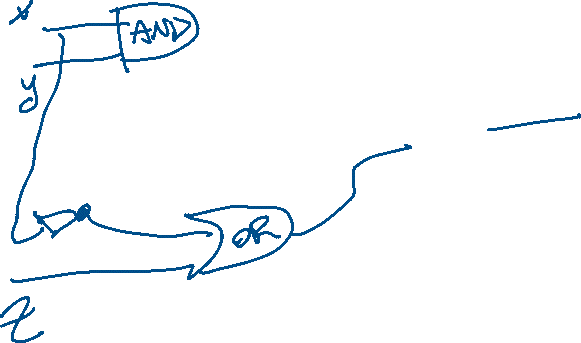 x
AND
y
OR
z